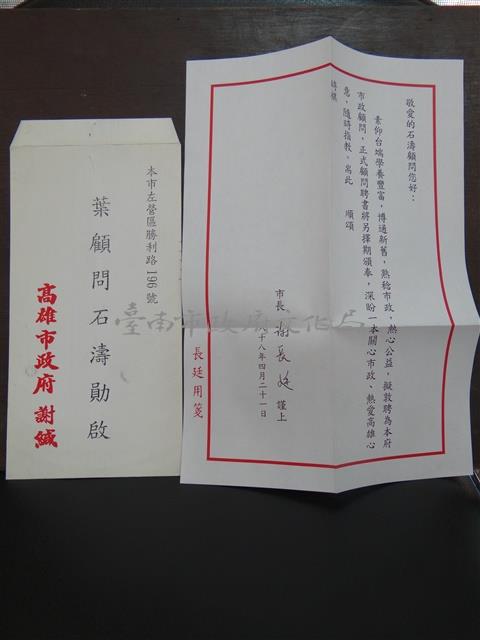 敬愛的石濤顧問您好：
素仰台端學養豐富，博通新舊，熟稔市政，熱心公益，擬敦聘為本府
市政顧問，正式顧問聘書將另擇期頒奉，深盼一本關心市政、熱愛高雄心
意，隨時指教。耑此　順頌
時祺
市長 謝長廷 謹上
八十八年四月二十一日
長廷用箋
本市左營區勝利路196號
葉顧問石濤勛啟
高雄市政府 謝緘
臺南市政府文化局